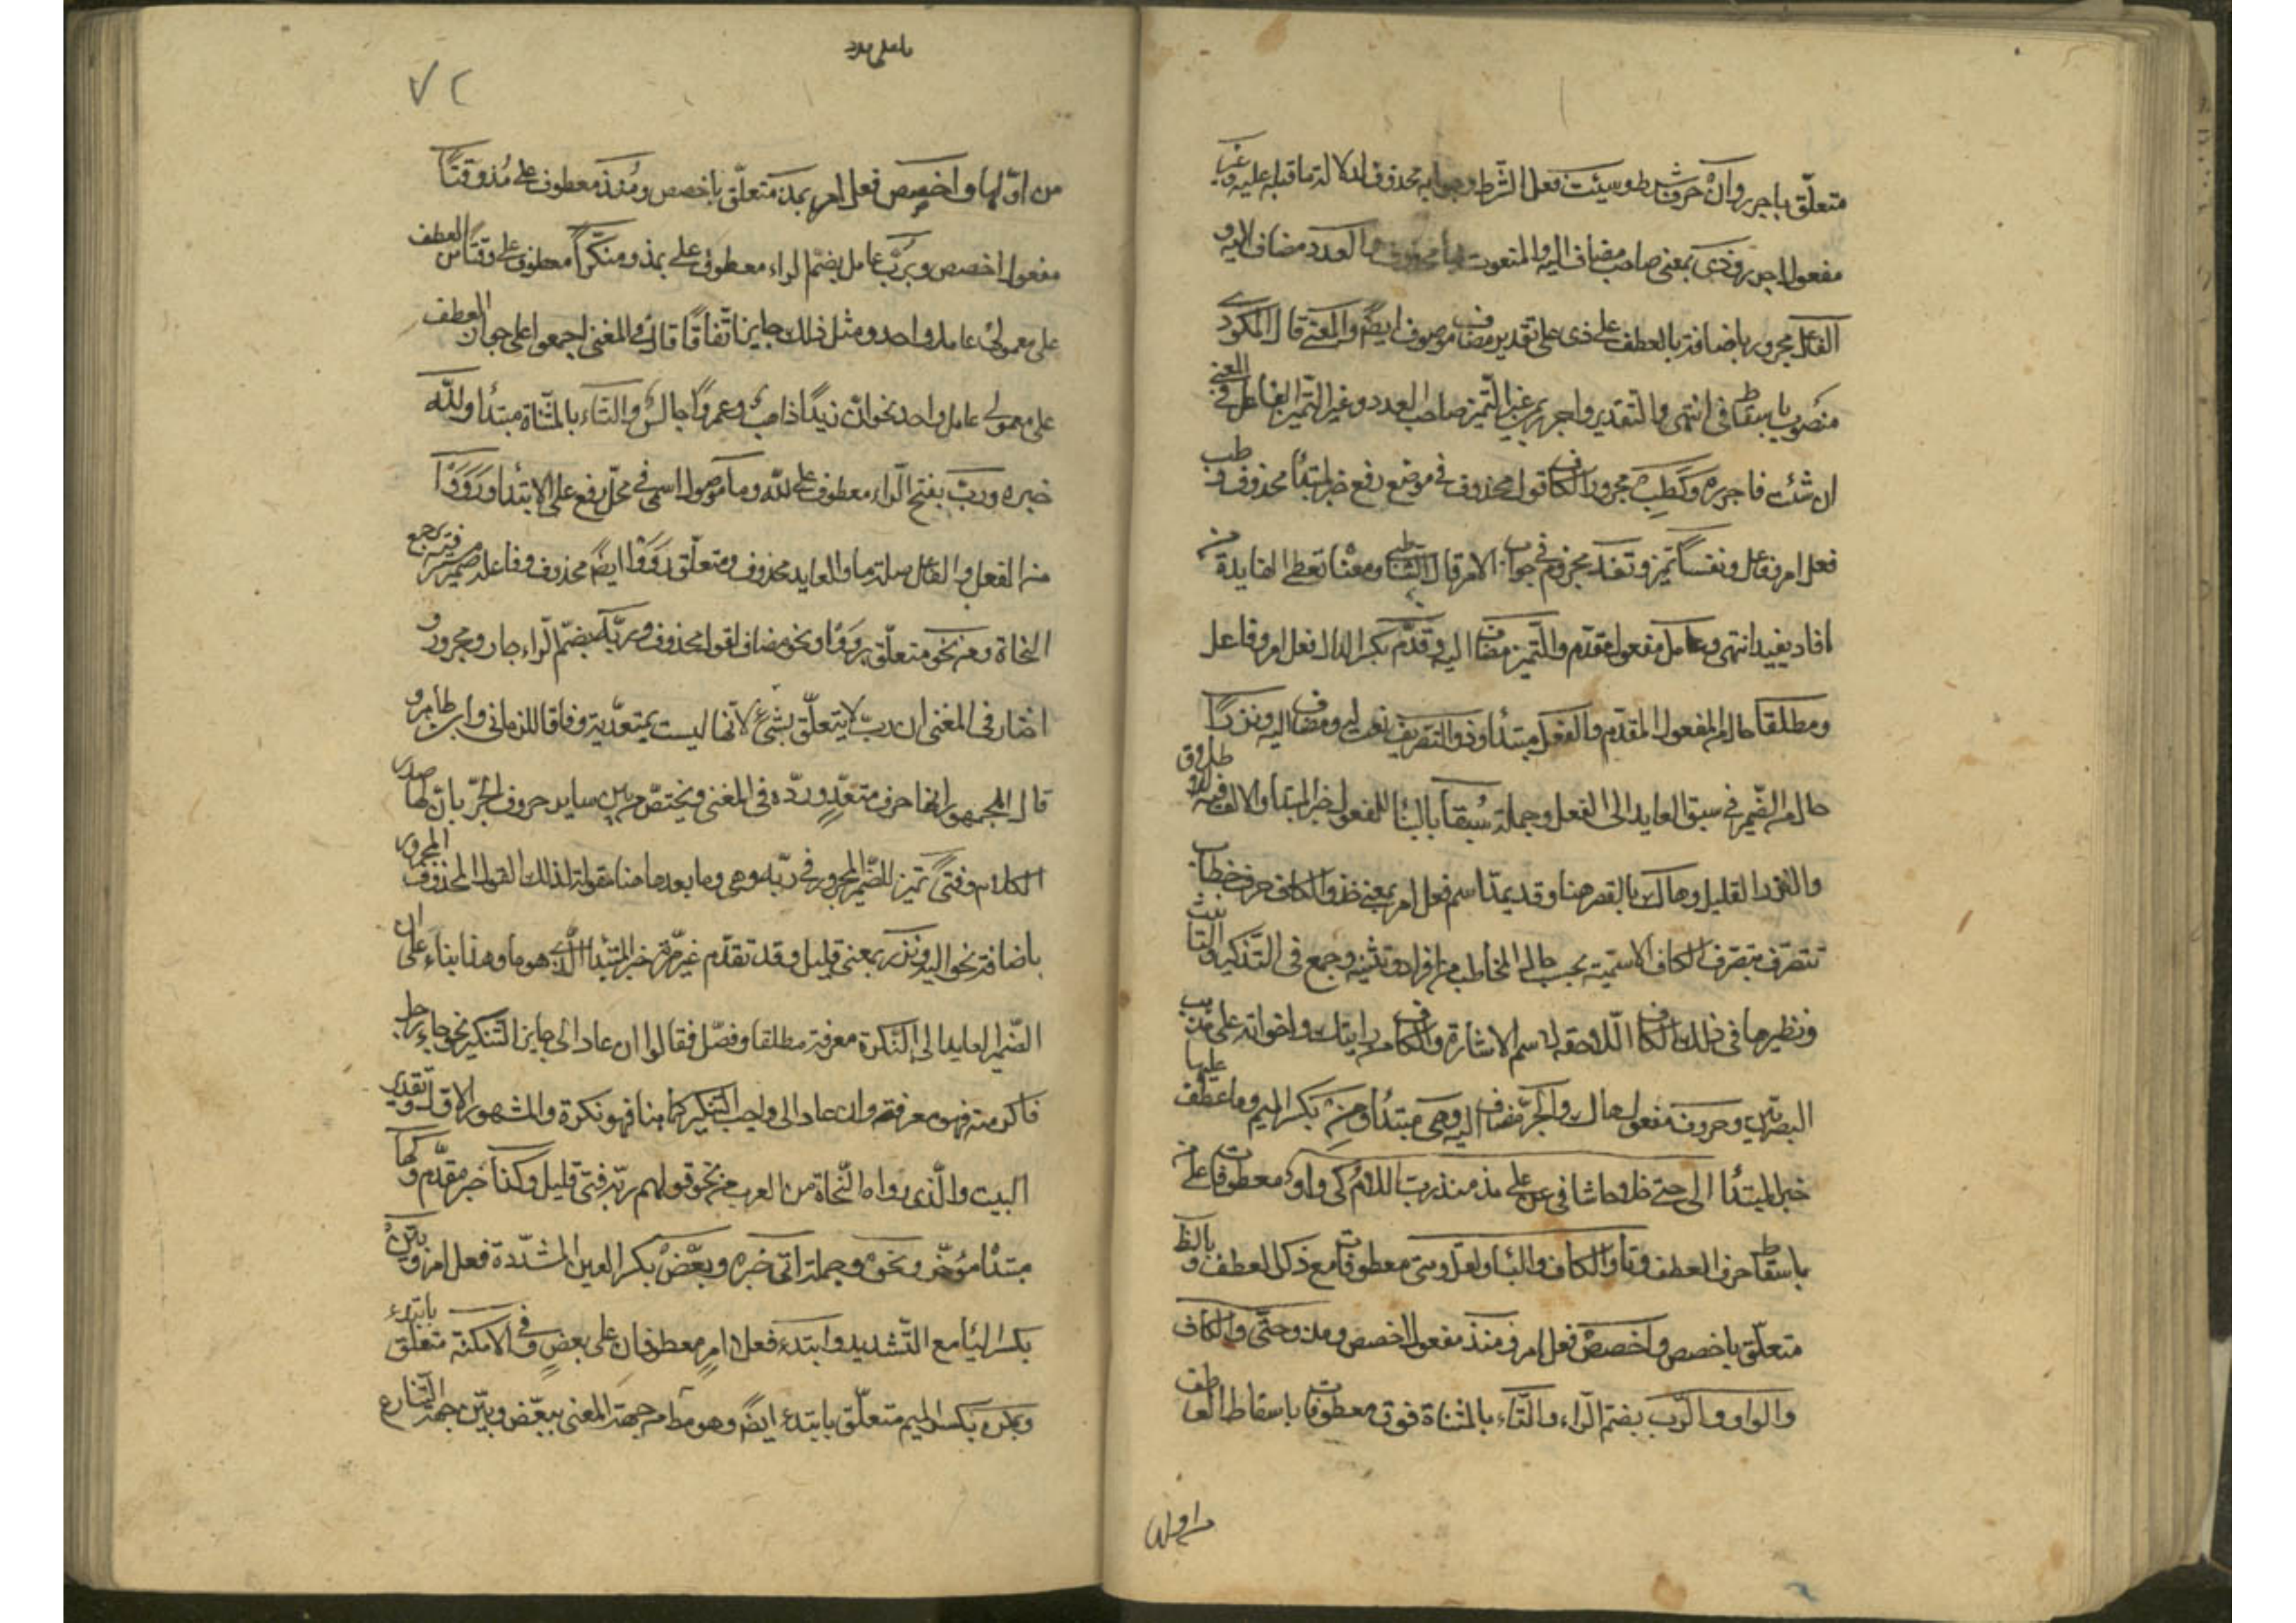 متعلّق باجرر وانْ حرف شرط وسيئت فعل الشّرط وجوابه محذوف لدلالة ماقبله عليه وغير
مفعول اجرر وذى بمعنى صاحب مضاف اليه والمنعوت بها محذوف والعدد مضاف لاليه و
الفاعل مجرور باضافة بالعطف على ذى على تقدير مضاف موصوف ايضًا والمعنى قال المكودى
منصوب باسقاط فى انتهى والتقدير واجرر بمن غير التّميز صاحب العدد وغير التّميز الفاعل فى المعنى
ان شئت فاجرره وكَطِبْ مجرور الكاف قول محذوف فى موضع رفع خبر لمبتدأ محذوف وطب
فعل امر وفاعل ونفسًا تميز وتفد مجزوم فى جواب الامر قال الشاطبى ومعناه تعطى الفايدة من
افاد يفيد انتهى وعامل مفعول مقدّم والتّميز مضاف اليه وقدّم بكسر الدال فعل امر وفاعل
ومطلقا حال من المفعول المقدّم والفعل مبتدأ وذو التصريف نعت له ومضاف اليه ونزرًا
حال من الضّمير فى سبق العايد الى الفعل وجملة سُبقا بالبناء للمفعول خبر المبتدا والالف فيه للاطلاق
والنزر القليل وهاك بالقصر هنا وقد يمدّ اسم فعل امر بمعنى خذ والكاف حرف خطاب
تتصرّف تصرف الكاف الاسميّة بحسب حال المخاطب من افراد وتثنية وجمع فى التّذكير والتأنيث
ونظيرها فى ذلك الكاف اللاحقة لاسم الاشارة والكاف من ارايتك واخواته على مذهب
البصريّين وحروف مفعول هاك والجرّ مضاف اليه وهى مبتدأ ومِنْ بكسر الميم وما عطف عليها
خبر المبتدأ الى حتى خلا حاشا فى عن على مذ منذ ربّ اللام كى واو معطوفات على من
باسقاط حرف العطف وتا والكاف والبا ولعلّ ومتى معطوفات مع ذكر العطف وبالظاهر
متعلّق باخصص واخصصْ فعل امر ومنذ مفعول اخصص ومذ وحتّى والكاف
والواو وربّ بضمّ الرّاء والتّاء بالمثناة فوق معطوفات باسقاط العاطف
من اوّلها
٧٢
من اوّلها واخصص فعل امر بمذ متعلّق باخصص ومُنذ معطوف على مُذ وقتًا
مفعول اخصص وبربّ عامل بضمّ الراء معطوف على بمذ ومنكّرًا معطوف على وقتًا من العطف
على معمولى عامل واحد ومثل ذلك جايز اتّفاقًا قال فى المغنى اجمعوا على جواز العطف
على معمولى عامل واحد نحو انّ زيدًا ذاهبٌ وعمروًا جالسٌ والتاء بالمثنّاة مبتدأ وللّه
خبره وربّ بفتح الرّاء معطوف على للّه وما موصول اسمى فى محلّ رفع على الابتدأ ورَوَوْا
من الفعل والفاعل صلة ما والعايد محذوف ومتعلّق رَوَوْا ايضًا محذوف وفاعله ضمير يرجع
النحاة ومن نحو متعلّق برووا ونحو مضاف لقول محذوف وربّه بضمّ الرّاء جار ومجرور و
اختار فى المغنى ان ربّ لا يتعلّق بشئ لانّها ليست بمتعدّية وفاقا للرمانى وابن طاهر و
قال الجمهور انها حرف متعدٍّ وردّه فى المغنى ويختصّ من بين ساير حروف الجرّ بان لها صدر
الكلام وفتىً تميز للضّمير المجرور فى ربّه وهى وما بعدها هنا مقولة لذلك القول المحذوف المجرور
باضافة نحو اليه ونزر بمعنى قليل وقد تقدّم غير مرّة خبر المبتدأ الّذى هو ما وهذا بناءً على ان
الضّمير العايد الى النّكرة معرفة مطلقا وفصّل فقالوا ان عاد الى جايز التنكير نحو جاء رجل
فاكرمته فهو معرفة وان عاد الى واجب التنكير كما هنا فهو نكرة والمشهور الاوّل وتقدير
البيت والّذى رواه النّحاة من العرب من نحو قولهم ربّه فتى قليل وكذا خبر مقدّم وكها
مبتدأ مؤخّر ونحوه وجملة اتى خبره وبعّضْ بكسر العين المشدّدة فعل امر وبيّن
بكسر اليا مع التّشديد وابتدء فعلا امرٍ معطوفان على بعّض وفى الامكنة متعلّق بابتدء
وبمن بكسر الميم متعلّق بابتدء ايضًا وهو مطلوب من جهة المعنى ببعّض وبيّن من جهة التّنازع